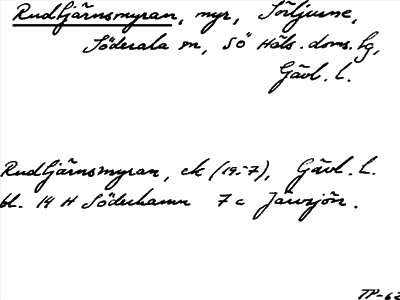 Rudtjärnsmyran, myr, Sörljusne,
Söderala sn, SÖ Häls. doms. fg,
Gävl. l.
Rudtjärnsmyran, ek (19-7), Gävl. l.
bl. 14 H Söderhamn 7 c Järvsjön.
TP-62